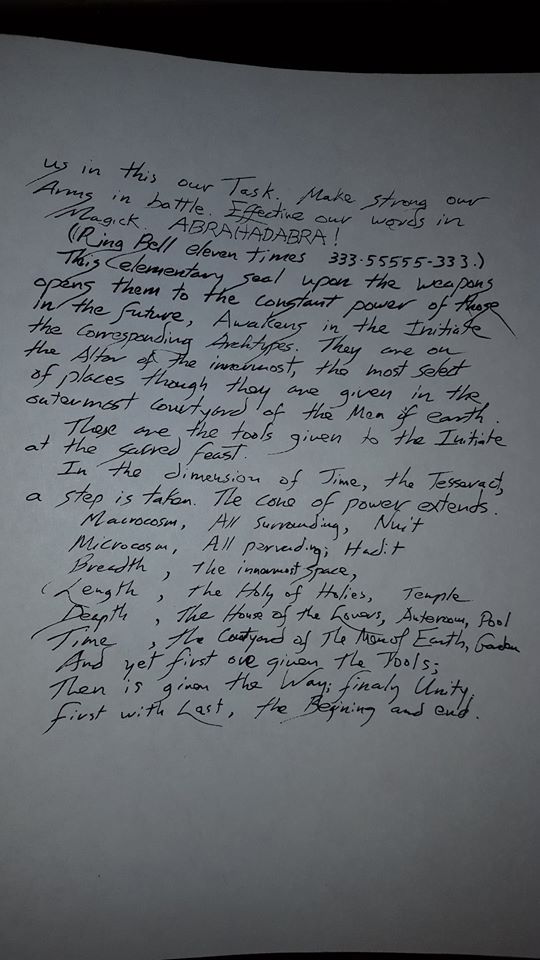 us in this our Task. Make strong our
Arms in battle. Effective our words in
Magick. ABRAHADABRA!
(Ring Bell eleven times 333-55555-333.)
This elementary seal upon the weapons
opens them to the constant power of those
in the future, Awakens in the Initiate
the Corresponding Archtypes. They are on
the Altar of the innermost, the most select
of places though they are given in the
outermost courtyard of the Men of earth.
These are the tools given to the Initiate
at the sacred feast.
In the dimension of Time, the Tesseract,
a step is taken. The cone of power extends.
Macrocosm, All surrounding, Nuit
Microcosm, All pervading; Hadit
Breadth, the innermost space,
Length, the Holy of Holies, Temple
Deapth, The House of the Lovers, Anteroom, Pool
Time, the Courtyard of The Men of Earth, Garden
And yet first are given the Tools;
Then is given the Way; finaly Unity.
First with Last, the Begining and end.